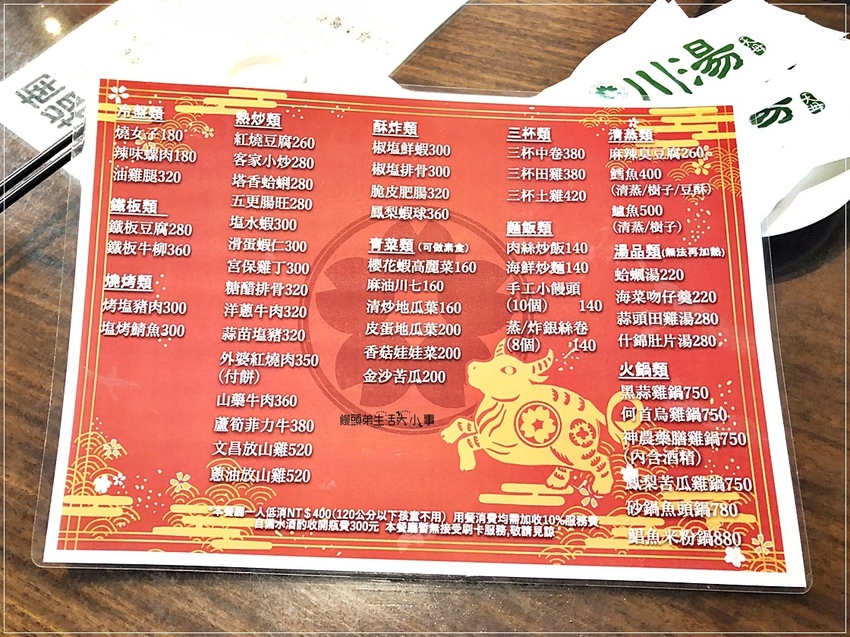 指南
川湯
冷盤類
燒女子180
辣味螺肉180
油雞腿320
鐵板類
鐵板豆腐280
鐵板牛柳360
燒烤類
烤塩豬肉300
塩烤鯖魚300
熱炒類
紅燒豆腐260
客家小炒280
塔香蛤蜊280
五更腸旺280
塩水蝦300
滑蛋蝦仁300
宮保雞丁300
糖醋排骨320
洋蔥牛肉320
蒜苗塩豬320
外婆紅燒肉350
(付餅)
山藥牛肉360
蘆筍菲力牛380
文昌放山雞520
蔥油放山雞520
酥炸類
椒塩鮮蝦300
椒塩排骨300
脆皮肥腸320
鳳梨蝦球360
青菜類(可做素食)
櫻花蝦高麗菜160
麻油川七160
清炒地瓜葉160
皮蛋地瓜葉200
香菇娃娃菜200
金沙苦瓜200
三杯類
三杯中卷380
三杯田雞380
三杯土雞420
麵飯類
肉絲炒飯140
海鮮炒麵140
手工小饅頭
(10個) 140
蒸/炸銀絲卷
(8個) 140
清蒸類
麻辣臭豆腐260
鱈魚400
(清蒸/樹子/豆酥)
鱸魚500
(清蒸/樹子)
湯品類(無法再加熱)
蛤蠣湯220
海菜吻仔羹220
蒜頭田雞湯280
什錦肚片湯280
火鍋類
黑蒜雞鍋750
何首烏雞鍋750
神農藥膳雞鍋750
(內含酒精)
鳳梨苦瓜雞鍋750
砂鍋魚頭鍋780
鯧魚米粉鍋880
饅頭弟生活大小事
*本餐廳一人低消NT$400(120公分以下孩童不用) 用餐消費均需加收10%服務費
自備水酒酌收開瓶費300元 本餐廳暫無接受刷卡服務,敬請見諒